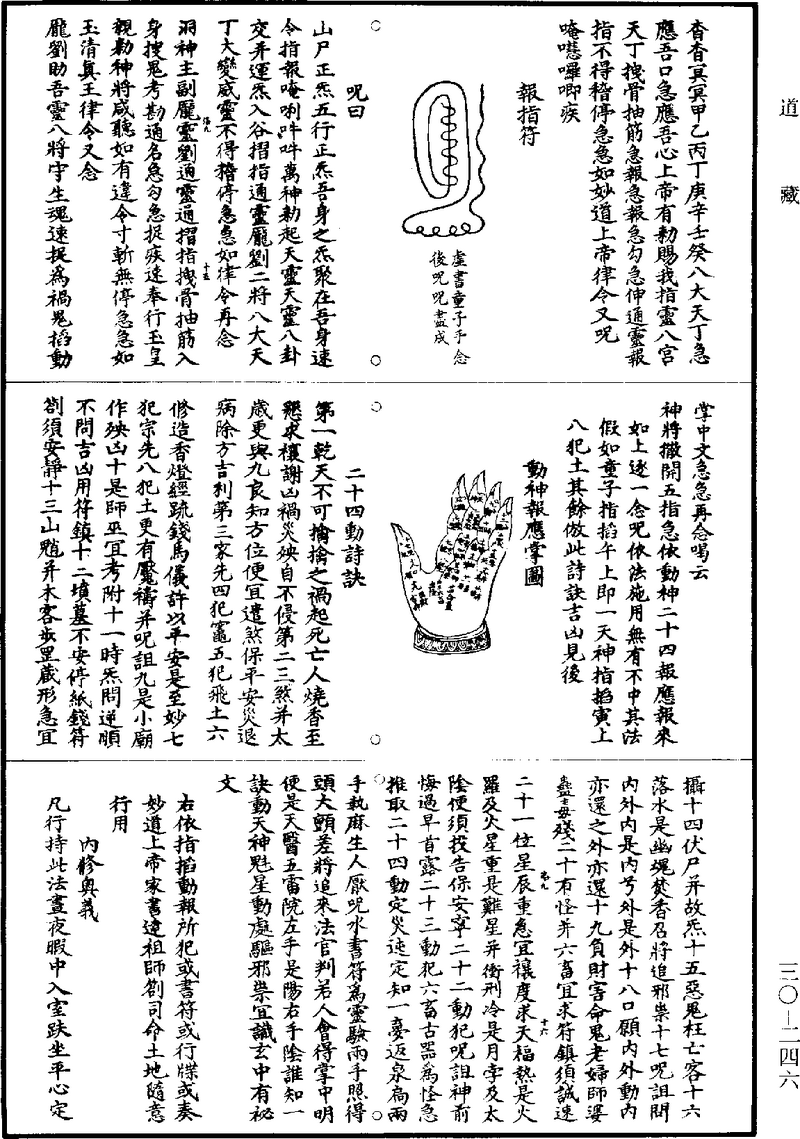 道藏
杳杳冥冥甲乙丙丁庚辛壬癸八大天丁急
應吾口急應吾心上帝有勑賜我指靈八宮
天丁拽骨抽筋急報急報急勾急伸通靈報
指不得稽停急急如妙道上帝律令又呪
唵囉唧疾
報指符
虛書童子手念
後呪呪盡成
呪曰
山尸正炁五行正炁吾身之炁聚在吾身速
令指報唵唎吽吽萬神勑起天靈天靈八卦
交并運炁入谷搯指通靈龐劉二將八大天
丁大變威靈不得稽停急急如律令再念
洞神主副龐靈劉通靈通搯指拽骨抽筋入
十五
身搜鬼考勘通名急勾急捉疾速奉行玉皇
親勑神將咸聽如有違令寸斬無停急急如
玉清真王律令又念
龐劉助吾靈八將守生魂速捉為禍鬼搯動
掌中文急急再念喝云
神將撒開五指急依動神二十四報應報來
如上逐一念呪依法施用無有不中其法
假如童子指搯午上即一天神指搯寅上
八犯土其餘倣此詩訣吉凶見後
動神報應掌圖
二十四動詩訣
第一乾天不可擒擒之禍起死亡人燒香至
懇求禳謝凶禍災殃自不侵第二三煞并太
歲更與九良知方位便宜遣煞保平安災退
病除方吉利第三家先四犯竈五犯飛土六
修造香燈經疏錢馬儀許以平安是至妙七
犯宗先八犯土更有魘禱并呪詛九是小廟
作殃凶十是師巫宜考附十一時炁問逆順
不問吉凶用符鎮十二墳墓不安停紙錢符
劄須安靜十三山魈并木客步罡藏形急宜
攝十四伏尸并故炁十五惡鬼枉亡客十六
落水是幽魂焚香召將追邪祟十七呪詛問
內外內是內兮外是外十八口願內外動內
亦還之外亦還十九負財害命鬼老婦師婆
蠱毒殘二十有怪并六畜宜求符鎮須誠速
二十一位星辰重急宜禳度求天福熱是火
十六
羅及火星重是難星并衝刑冷是月孛及太
陰便須投告保安寧二十二動犯呪詛神前
悔過早首露二十三動犯六畜古器為怪急
推取二十四動定災迍定知一夢返泉扃兩
手執麻生人厭呪水書符為靈驗兩手照得
頭大顫差將追來法官判若人會得掌中明
便是天醫五雷院左手是陽右手陰誰知一
訣動天神魁星動處驅邪祟宜識玄中有秘
文
右依指搯動報所犯或書符或行牒或奏
妙道上帝家書達祖師劄司命土地隨意
行用
內修奧義
凡行持此法晝夜暇中入室趺坐平心定
三〇-二四六